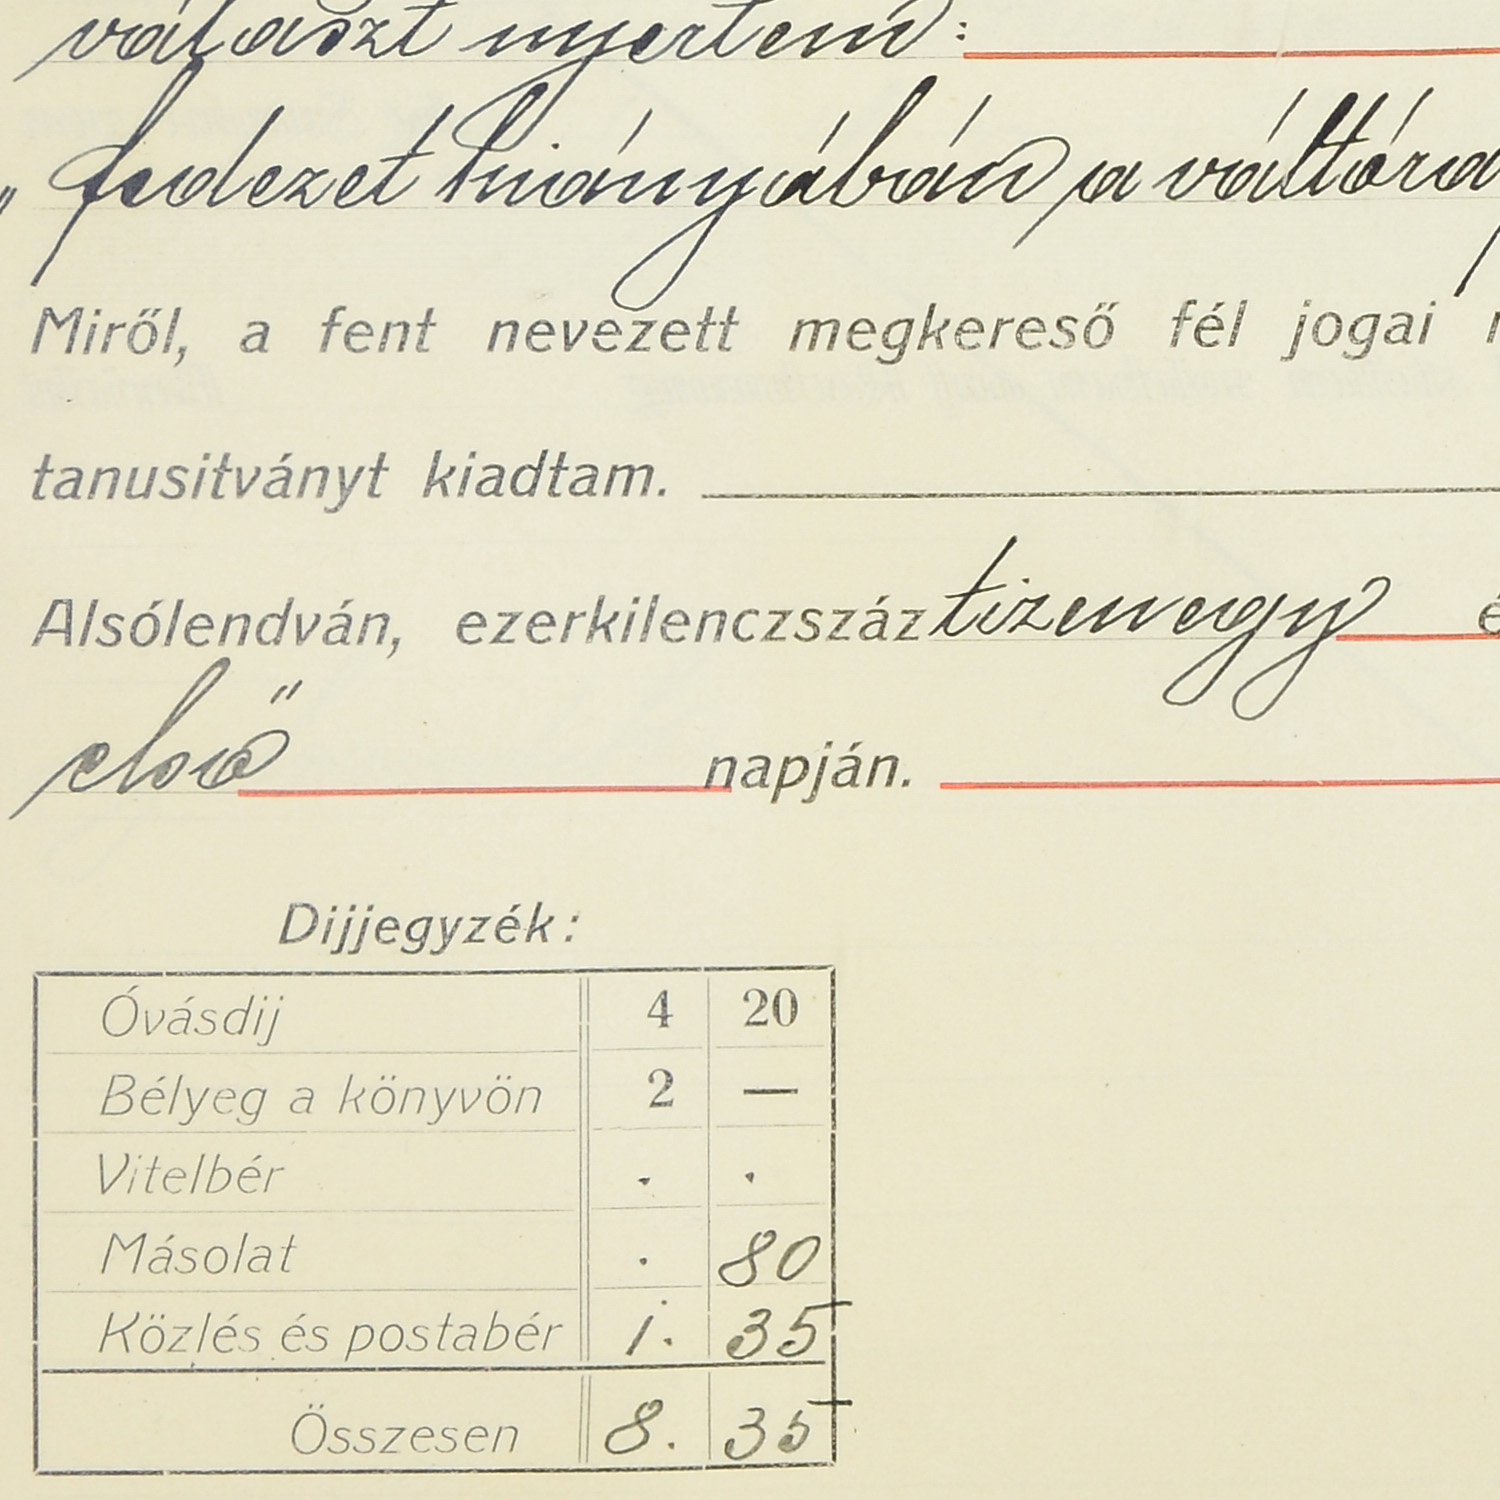 választ nyertem:
„fedezet hiányában a váltóra
Miről, a fent nevezett megkereső fél jogai
tanusitványt kiadtam.
Alsólendván, ezerkilenczszáz tizenegy é
első napján.
Dijjegyzék:
Óvásdij 4 20
Bélyeg a könyvön 2 —
Vitelbér . .
Másolat . 80
Közlés és postabér 1. 35
Összesen 8. 35